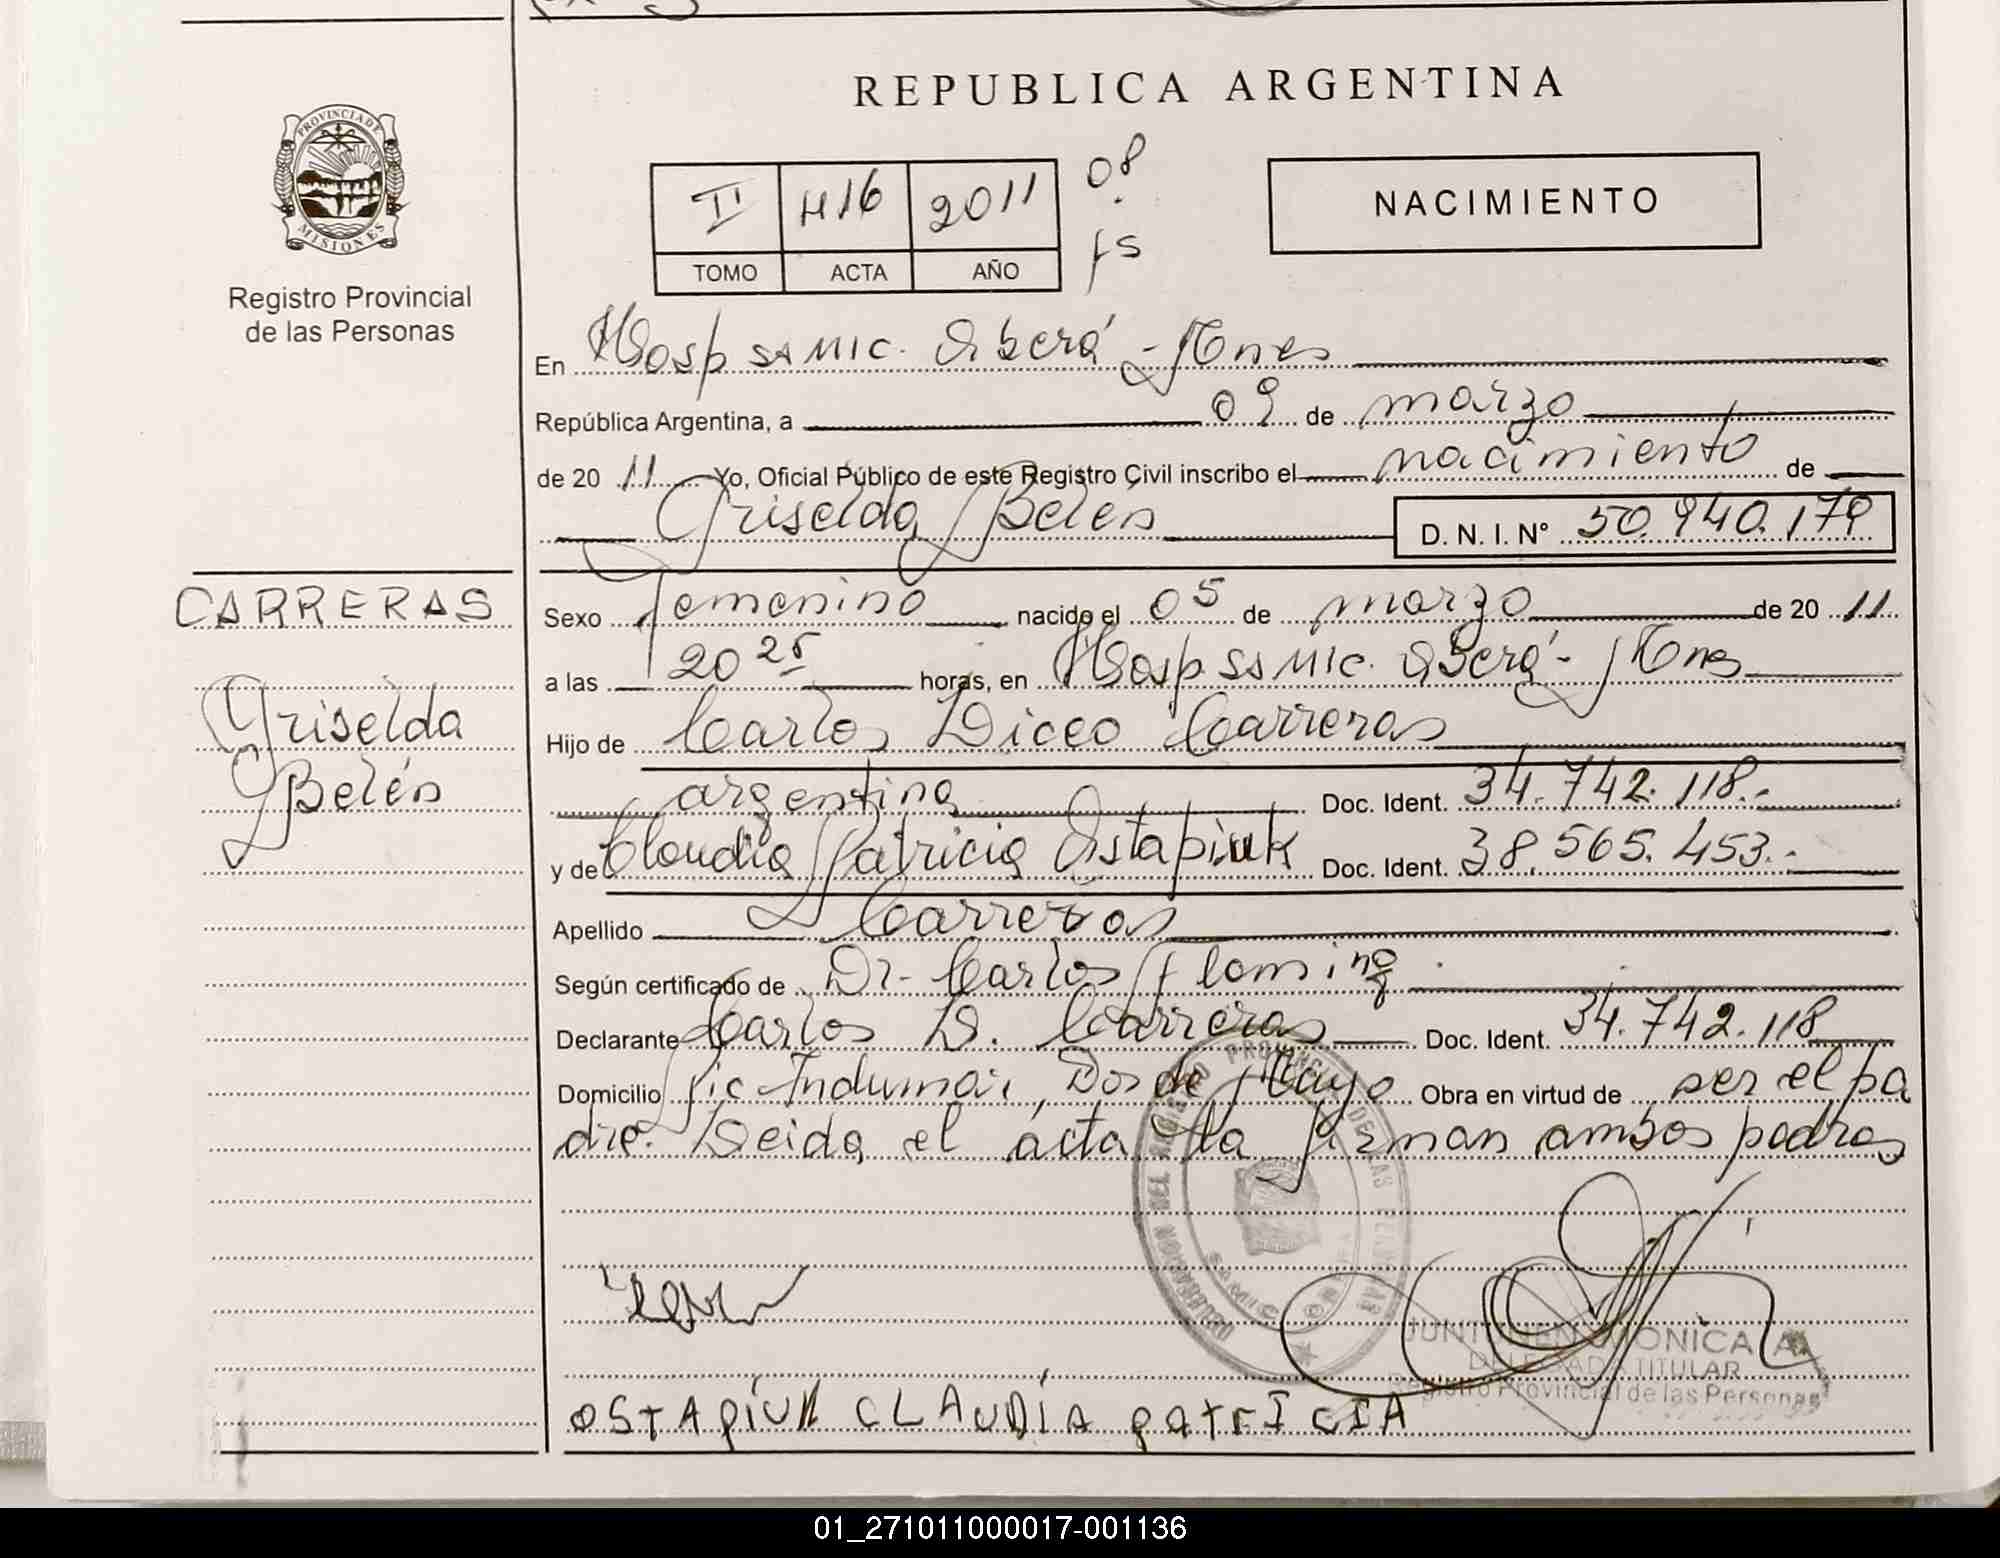 PROVINCIA DE
MISIONES
Registro Provincial
de las Personas
REPUBLICA ARGENTINA
II 416 2011 08
TOMO ACTA AÑO fs
NACIMIENTO
En Hosp SAMIC. Oberá - Mnes
República Argentina, a 09 de marzo
de 2011 Yo, Oficial Público de este Registro Civil inscribo el nacimiento de
Griselda Belén D. N. I. Nº 50.940.179
CARRERAS
Griselda
Belén
Sexo femenino nacido el 05 de marzo de 2011
a las 20 25 horas, en Hosp SAMIC. Oberá - Mnes
Hijo de Carlos Carreras
argentina Doc. Ident. 34.742.118.-
y de Claudia Patricia Ostapiuk Doc. Ident. 38.565.453.-
Apellido Carreras
Según certificado de Dr. Carlos Fleming
Declarante Carlos D. Carreras Doc. Ident. 34.742.118
Domicilio Pic. Indumar, Dos de Mayo Obra en virtud de ser el pa
dre. Leida el acta la firman ambos padres
DELEGACION DEL REGISTRO PROVINCIAL DE LAS PERSONAS
SAMIC
MONICA A.
DELEGADA TITULAR
Registro Provincial de las Personas
OSTAPIUK CLAUDIA PATRICIA
01_271011000017-001136